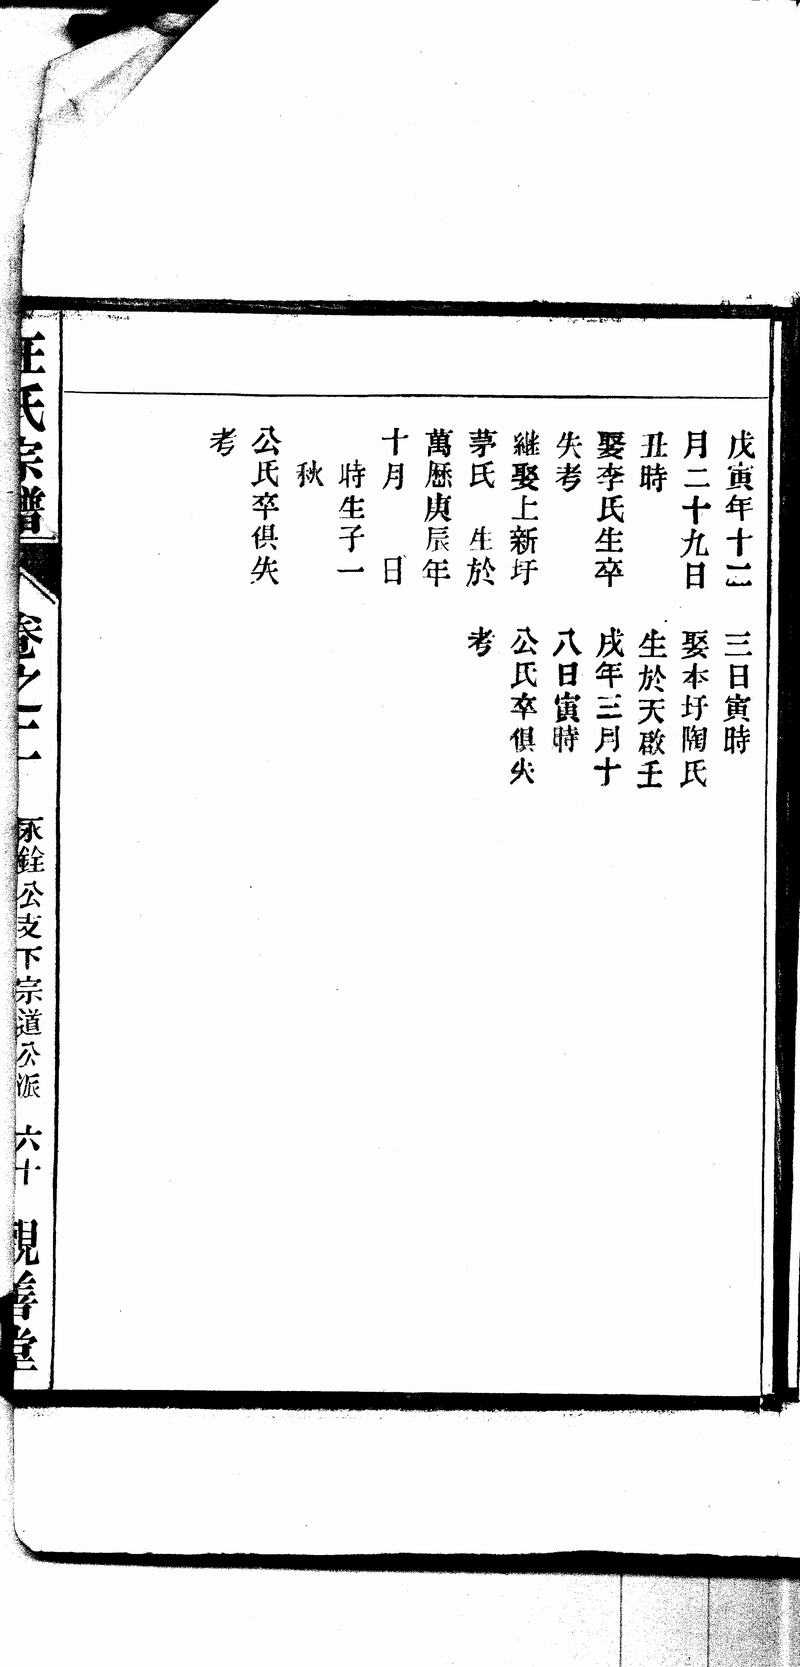 戊寅年十二
月二十九日
丑時
娶李氏生卒
失考
継娶上新圩
茅氏　生於
萬歷庚辰年
十月　　日
時生子一
秋
公氏卒俱失
考
三日寅時
娶本圩陶氏
生於天啟壬
戌年三月十
八日寅時
公氏卒俱失
考
汪氏宗譜
卷之二
永銓公支下宗道公派
六十
親善堂